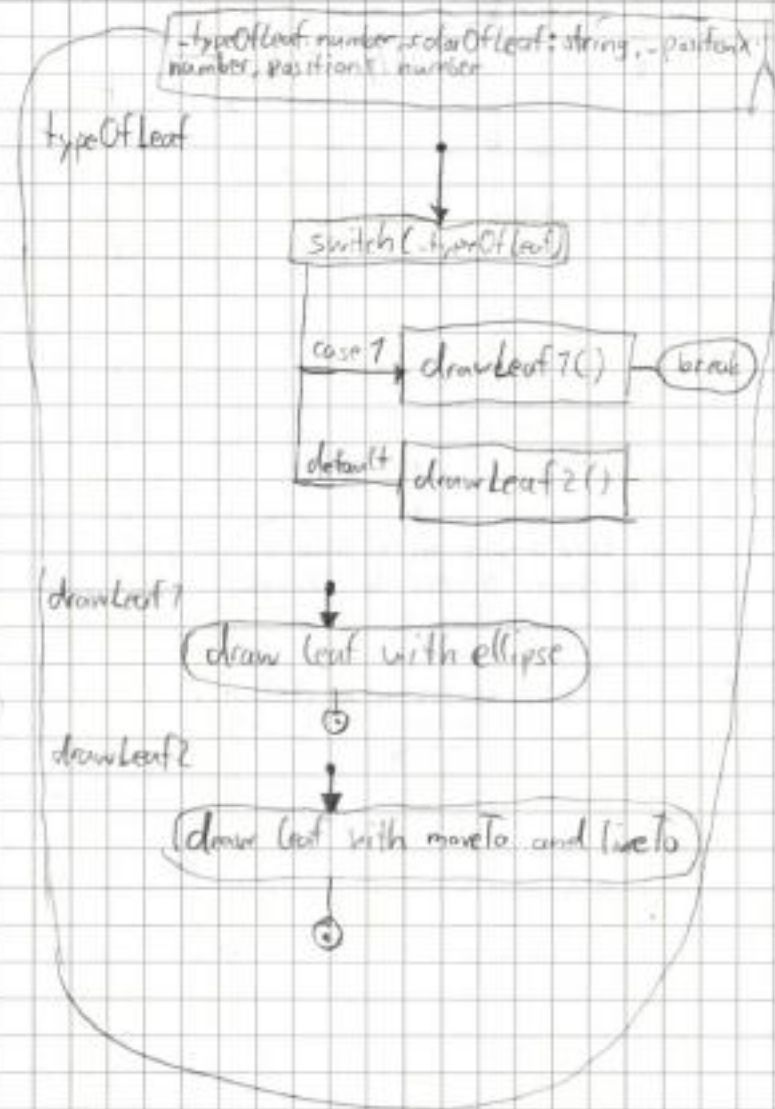 _typeOfLeaf: number, _colorOfLeaf: string, _positionX:
number, positionY: number
typeOfLeaf
switch(_typeOfLeaf)
case 1
drawLeaf1()
break
default
drawLeaf2()
drawLeaf1
draw leaf with ellipse
drawLeaf2
draw leaf with moveTo and lineTo